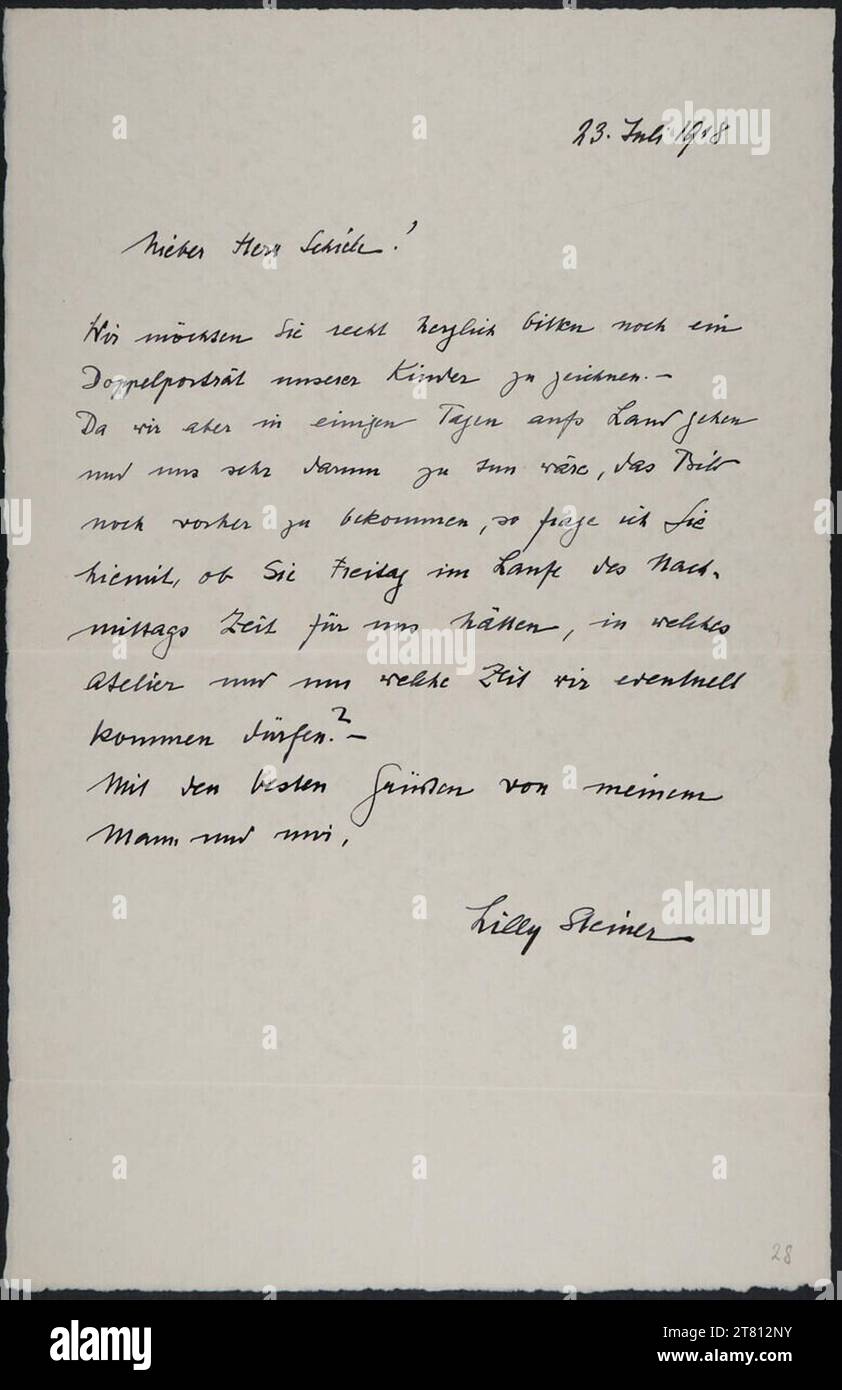 23. Juli 1918
Lieber Herr Schiele!
Wir möchten Sie recht herzlich bitten noch ein
Doppelporträt unserer Kinder zu zeichnen.-
Da wir aber in einigen Tagen aufs Land gehen
und uns sehr darum zu tun wäre, das Bild
noch vorher zu bekommen, so frage ich Sie
hiemit, ob Sie Freitag im Laufe des Nach-
mittags Zeit für uns hätten, in welches
Atelier und um welche Zeit wir eventuell
kommen dürfen?-
Mit den besten Grüßen von meinem
Mann und mir,
Lilly Steiner
28
alamy
Image ID: 2T812NY
www.alamy.com